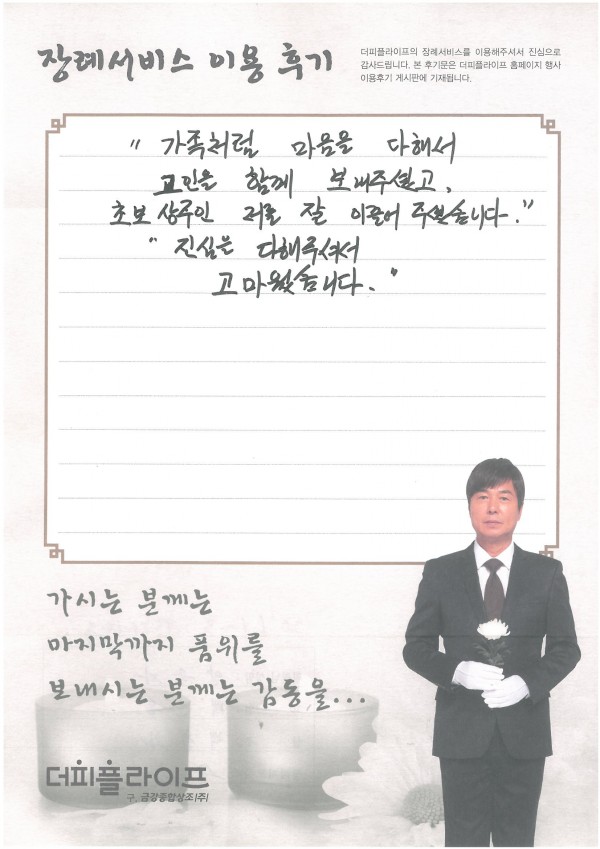 장례서비스 이용 후기
더피플라이프의 장례서비스를 이용해주셔서 진심으로
감사드립니다. 본 후기문은 더피플라이프 홈페이지 행사
이용후기 게시판에 기재됩니다.
" 가족처럼 마음을 다해서
고인을 함께 보내주셨고,
초보 상주인 저를 잘 이끌어 주셨습니다."
" 진심을 다해주셔서
고마웠습니다. "
가시는 분께는
마지막까지 품위를
보내시는 분께는 감동을...
더피플라이프
구. 금강종합상조(주)